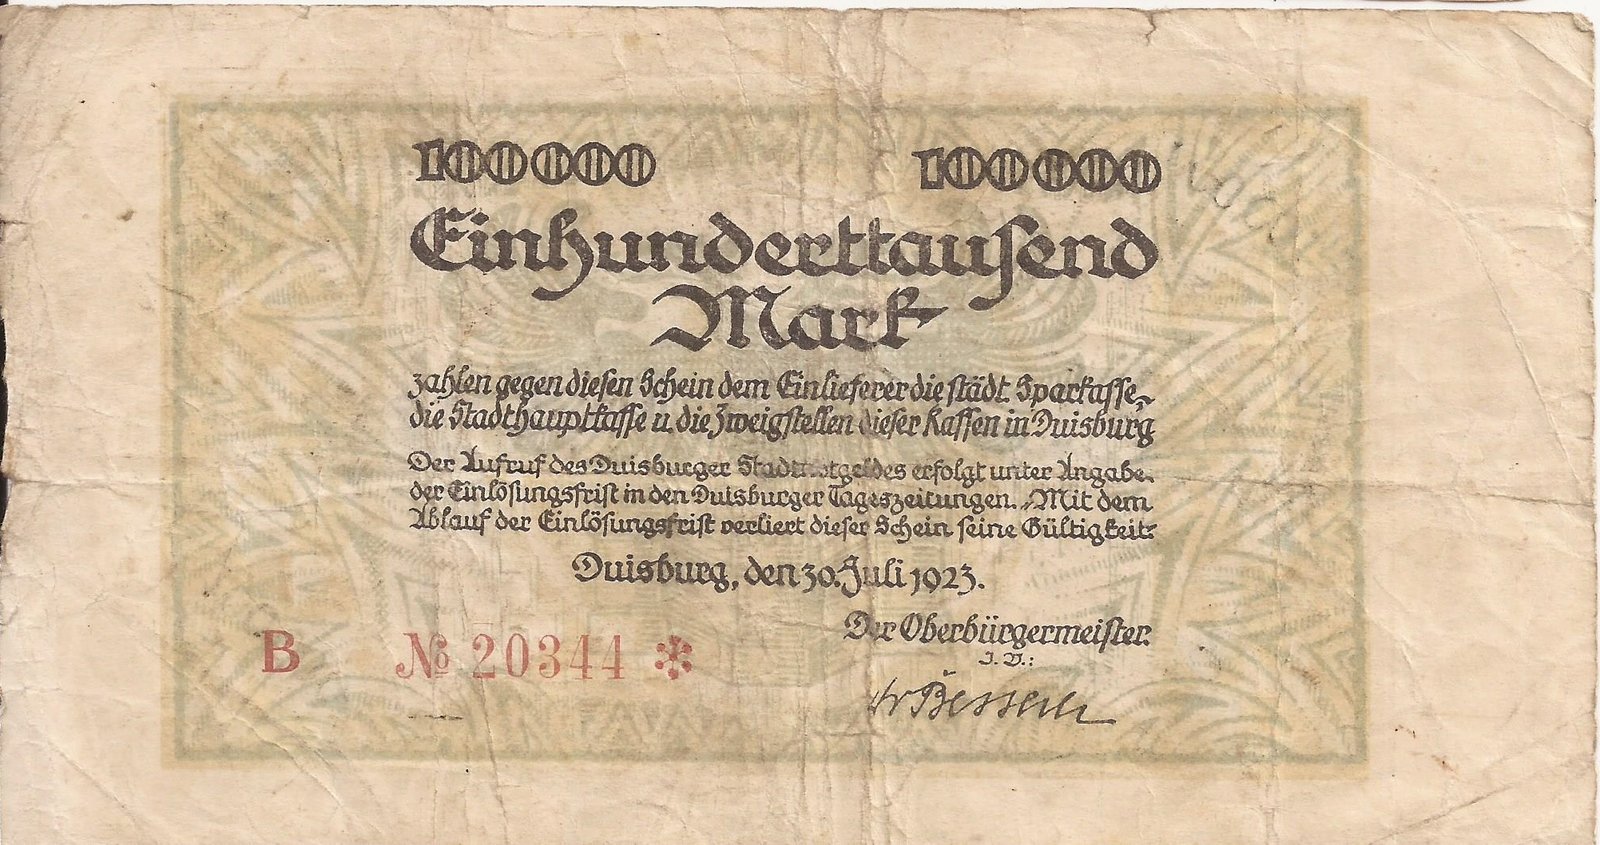 100 000 100 000
Einhunderttausend
Mark
zahlen gegen diesen Schein dem Einlieferer die städt. Sparkasse,
die Stadthauptkasse u. die Zweigstellen dieser Kassen in Duisburg
Der Aufruf des Duisburger Stadtnotgeldes erfolgt unter Angabe
der Einlösungsfrist in den Duisburger Tageszeitungen. Mit dem
Ablauf der Einlösungsfrist verliert dieser Schein seine Gültigkeit.
Duisburg, den 30. Juli 1923.
Der Oberbürgermeister.
I. V.:
B № 20344 *